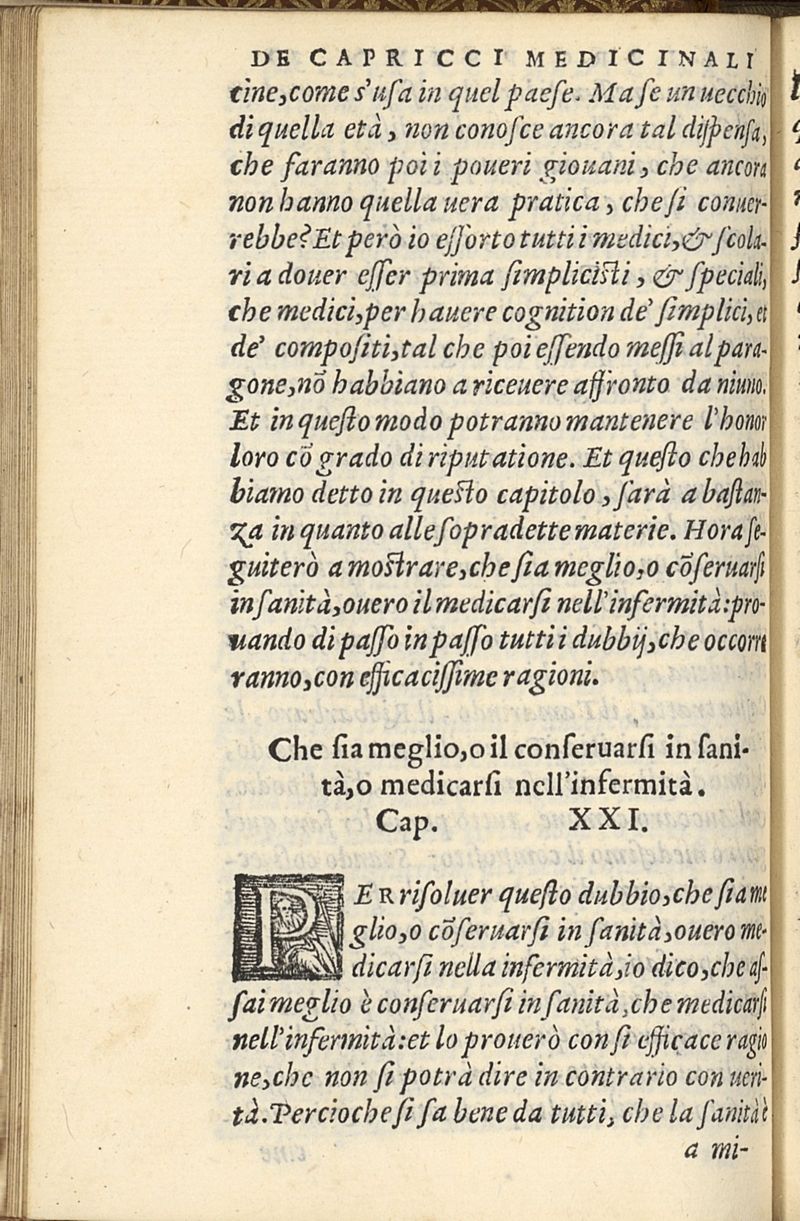 DE CAPRICCI MEDICINALI
tine,come s'uſa in quel paeſe. Ma ſe un uecchio
di quella età, non conoſce ancora tal diſpenſa,
che faranno poi i poueri giouani, che ancora
non hanno quella uera pratica, che ſi conuer-
rebbe? Et però io eſſorto tutti i medici,& ſcola-
ri a douer eſſer prima ſimpliciſti, & ſpeciali,
che medici,per hauere cognition de' ſimplici, et
de' compoſiti,tal che poi eſſendo meſſi al para-
gone,nō habbiano a riceuere affronto da niuno.
Et in queſto modo potranno mantenere l'honor
loro cō grado di riputatione. Et queſto che hab
biamo detto in queſto capitolo, ſarà a baſtan-
za in quanto alle ſopradette materie. Hora ſe-
guiterò a moſtrare,che ſia meglio,o cōſeruarſi
in ſanità,ouero il medicarſi nell'infermità:pro-
uando di paſſo in paſſo tutti i dubbij,che occorre
ranno,con efficaciſſime ragioni.
Che ſia meglio,o il conſeruarſi in ſani-
tà,o medicarſi nell'infermità.
Cap. XXI.
PER riſoluer queſto dubbio,che ſia me
glio,o cōſeruarſi in ſanità,ouero me-
dicarſi nella infermità,io dico,che aſ-
ſai meglio è conſeruarſi in ſanità,che medicarſi
nell'infermità:et lo prouerò con ſi efficace ragio
ne,che non ſi potrà dire in contrario con ueri-
tà. Percioche ſi ſa bene da tutti, che la ſanità è
a mi-